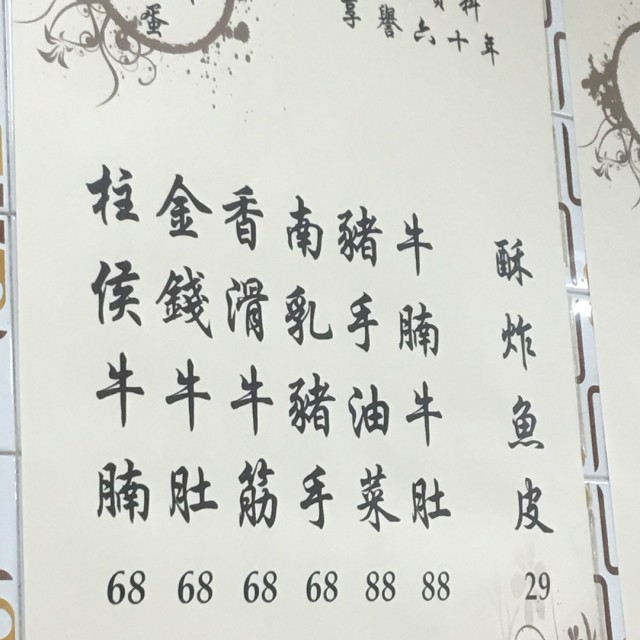 享譽六十年
蛋
酥炸魚皮 29
牛腩牛肚 88
豬手油菜 88
南乳豬手 68
香滑牛筋 68
金錢牛肚 68
柱侯牛腩 68